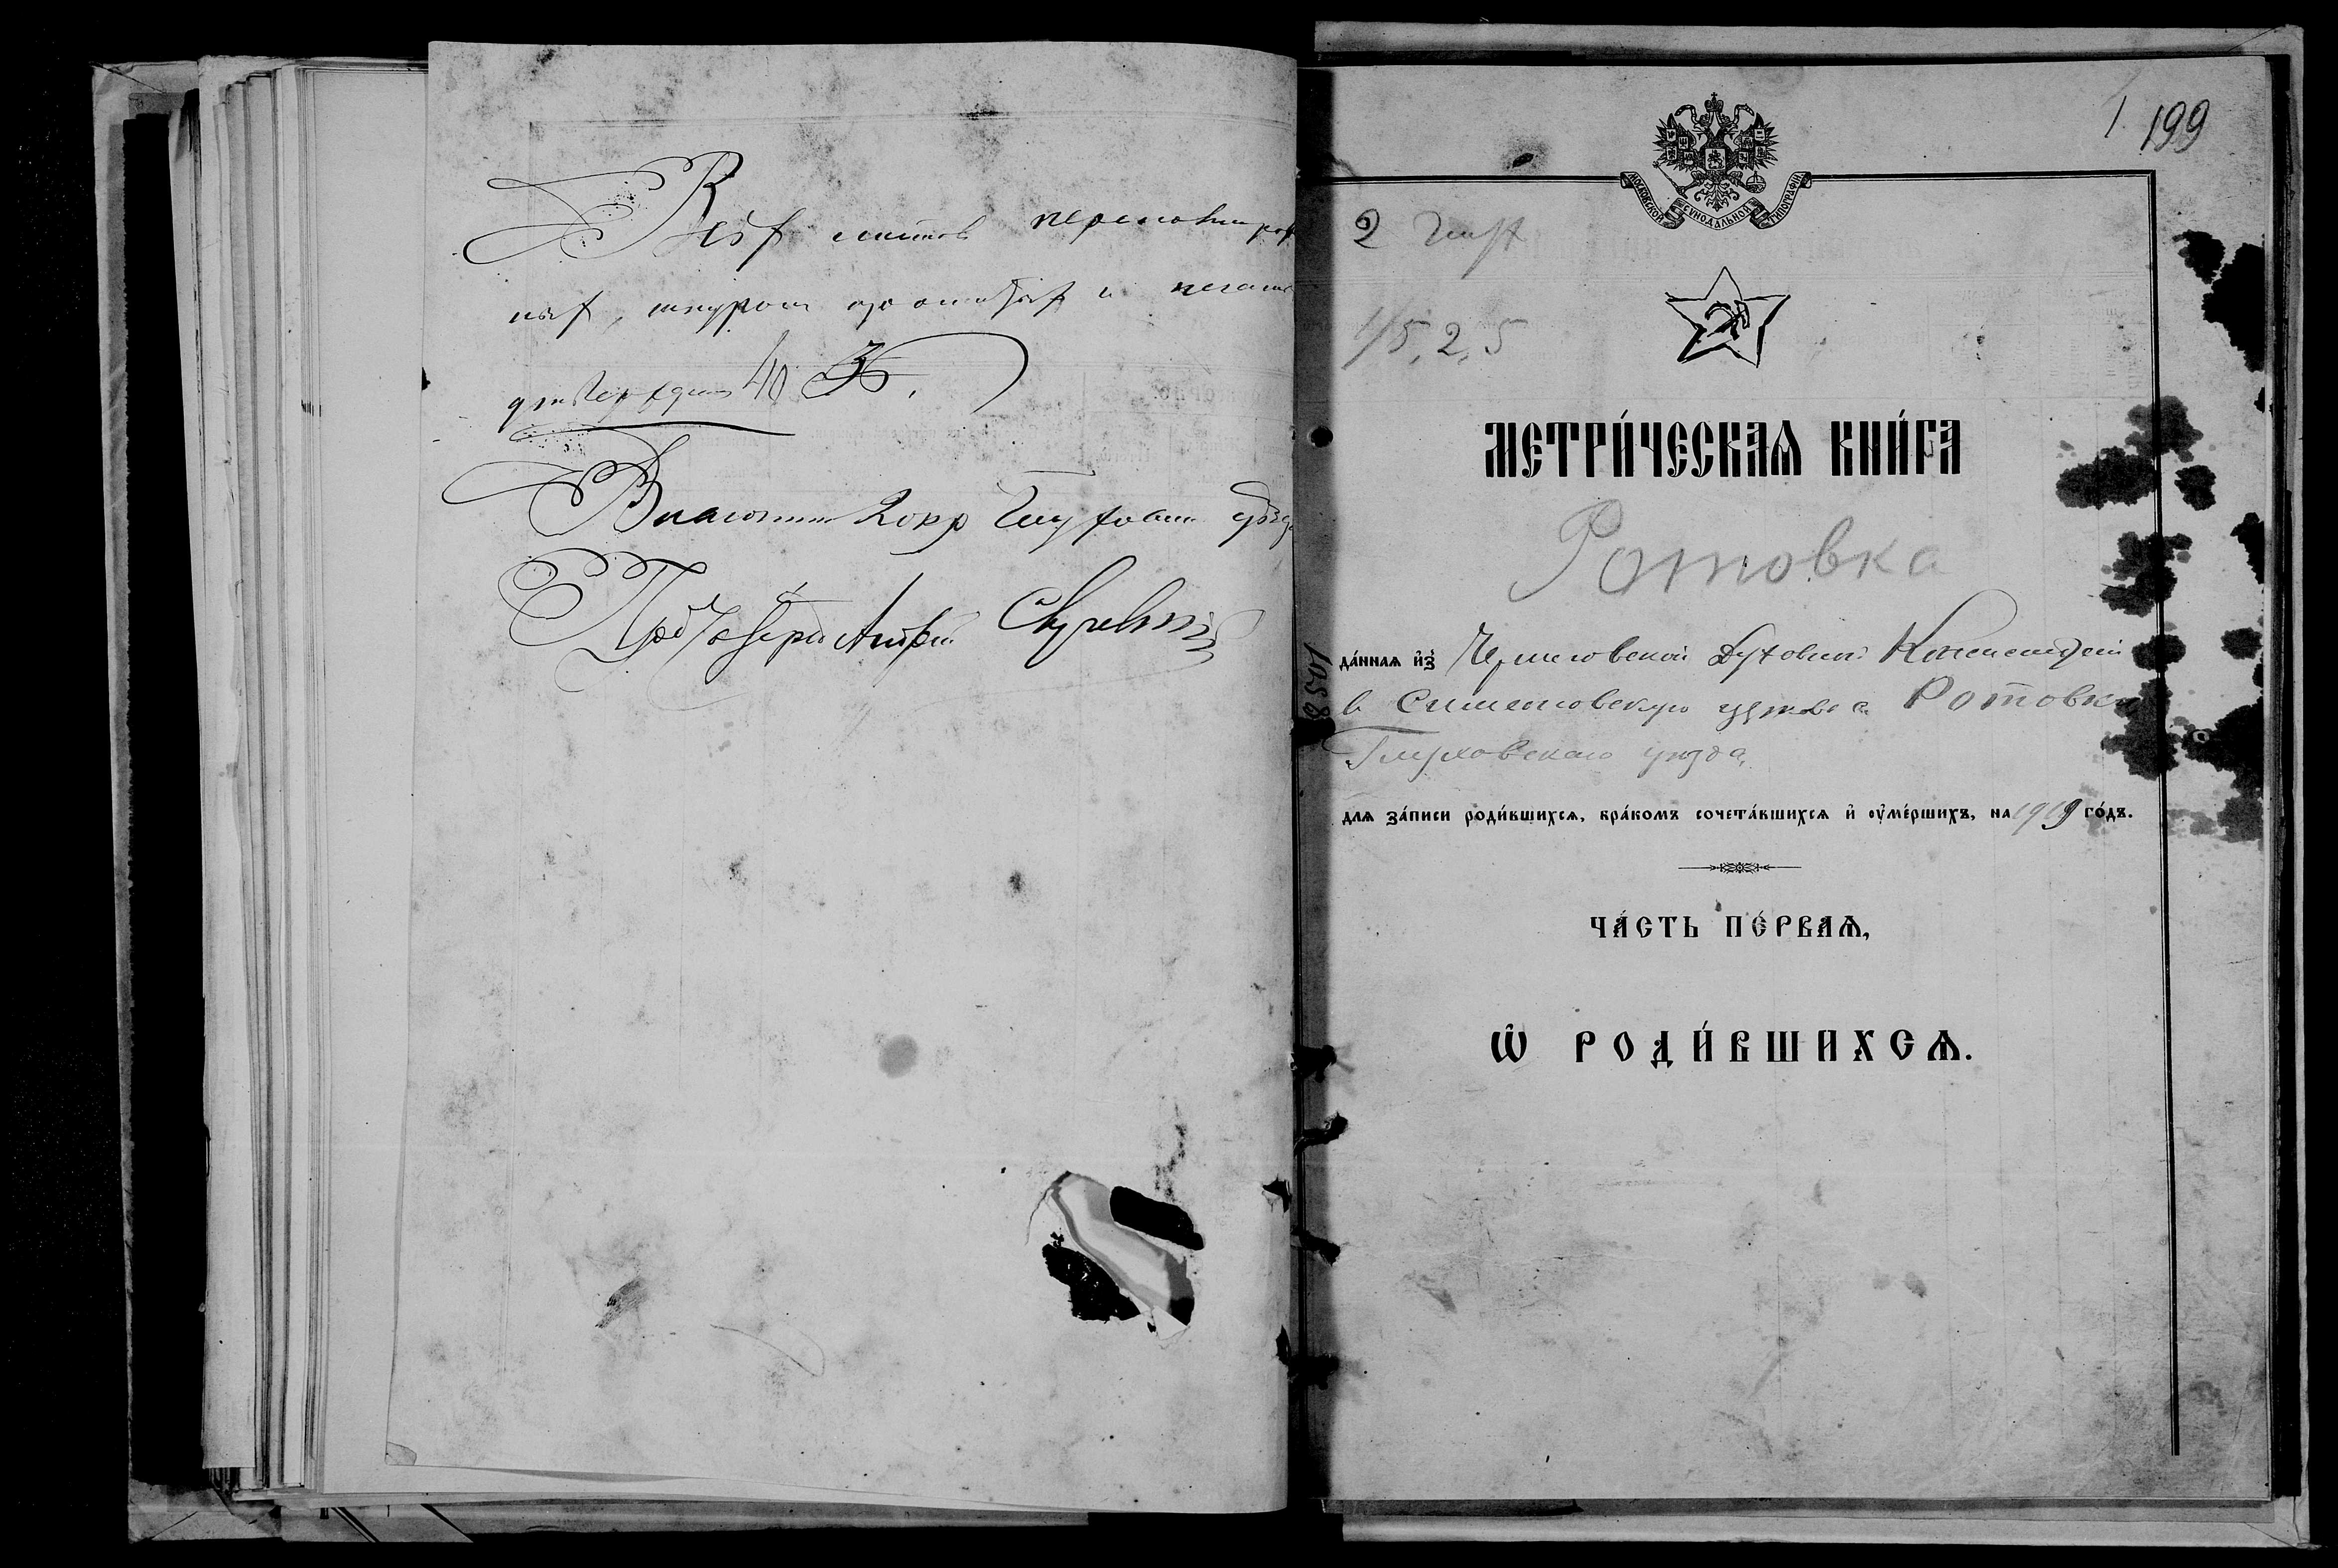 Всех листов перенумерован
ных, шнуром прошитых и печатью
утвержденных 40
Благочинный 2 окр Глуховского уезда
1 199
МОСКОВСКОЙ СУНОДАЛЬНОЙ ТИПОГРАФІИ
2
1/5, 2, 5
МЕТРИ́ЧЕСКАѦ КНИ́ГА
Ротовка
да́ннаѧ и҆з̾ Черниговской Духовной Консистории
в Симеоновскую церковь с. Ротовки
Глуховского уезда,
длѧ за́писи роди́вшихсѧ, бра́комъ сочета́вшихсѧ и҆ оу҆ме́ршихъ, на 1919 го́дъ.
ЧА́СТЬ ПЕ́РВАѦ,
Ѡ҆ РОДИ́ВШИХСѦ.
1058